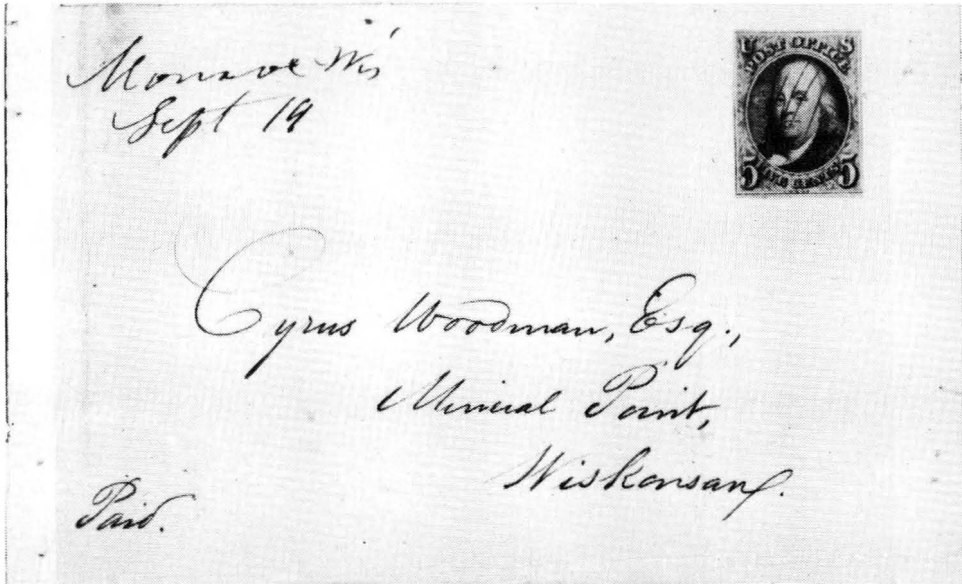 Monroe Wis
Sept 19
U S
POST OFFICE
5 FIVE CENTS 5
Cyrus Woodman, Esq.,
Mineral Point,
Wiskonsan.
Paid.